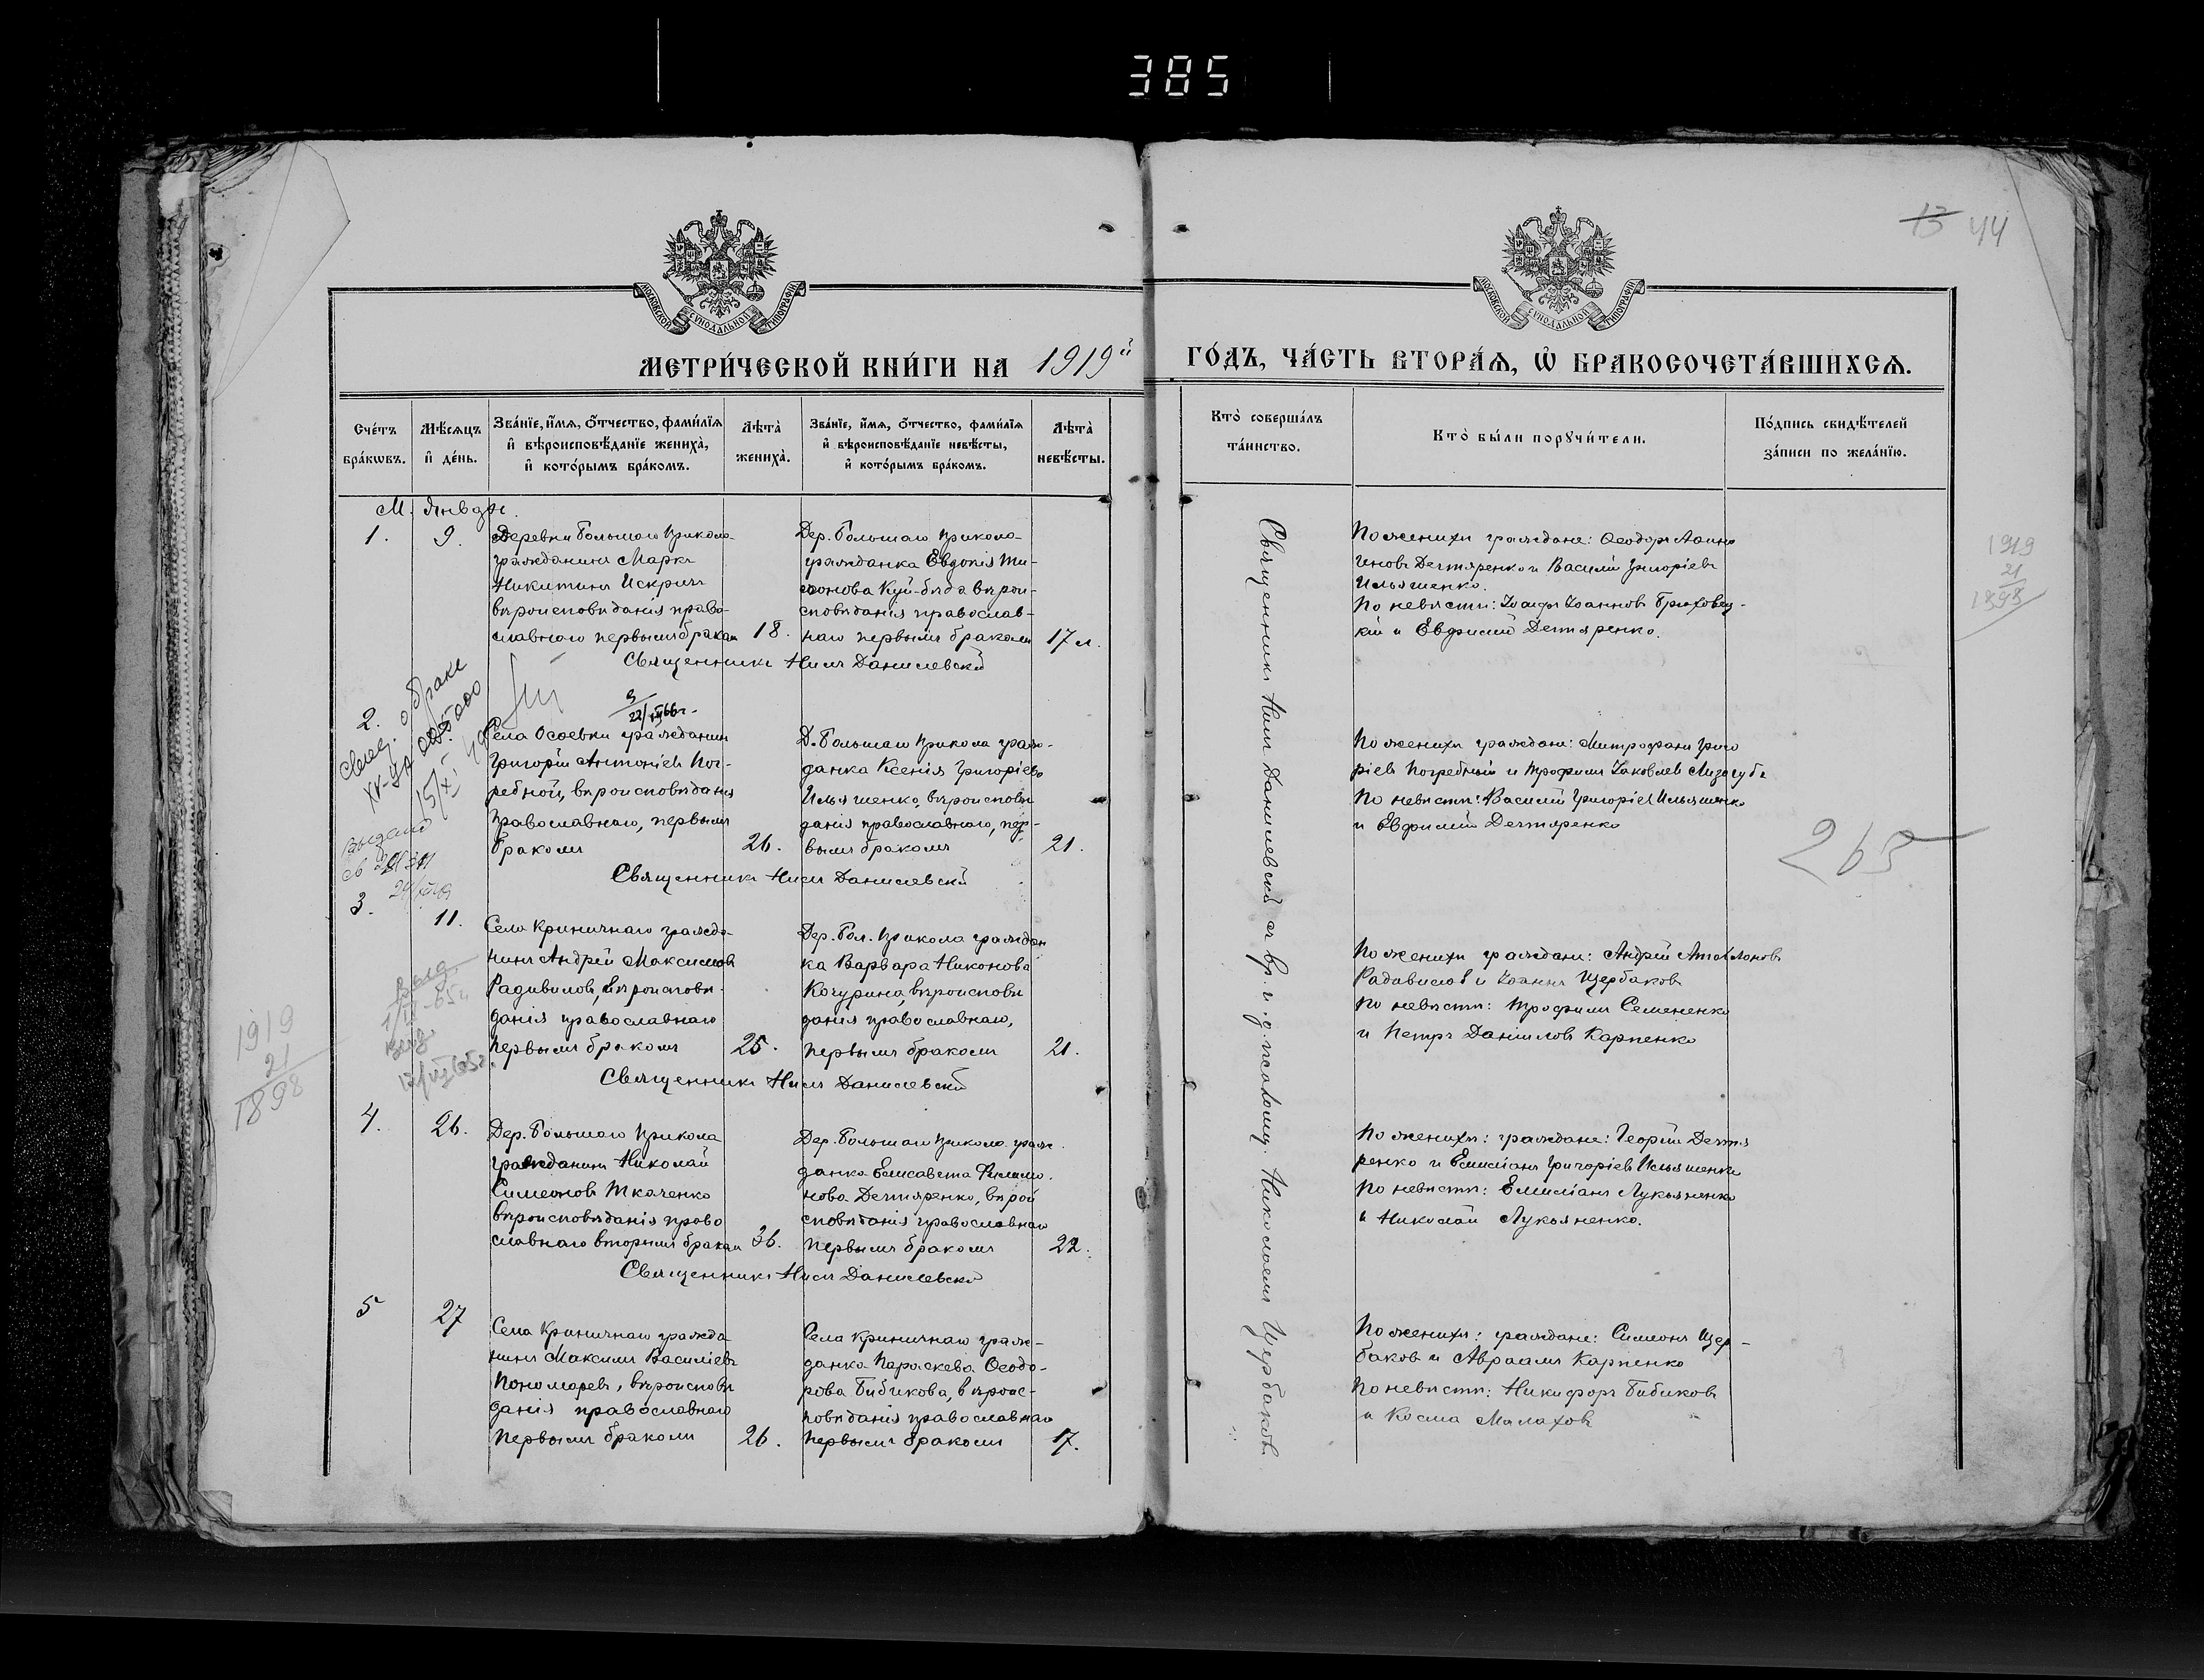 385
13 44
МОСКОВСКОЙ СУНОДАЛЬНОЙ ТИПОГРАФІИ
МОСКОВСКОЙ СУНОДАЛЬНОЙ ТИПОГРАФІИ
МЕТРИ́ЧЕСКОЙ КНИ́ГИ НА 1919й ГО́ДЪ, ЧА́СТЬ ВТОРА́Ѧ, Ѡ҆ БРАКОСОЧЕТА́ВШИХСѦ.
Сче́тъ бра́кѡвъ.
Мѣ́сѧцъ и҆ де́нь.
Зва́нїе, и҆́мѧ, ѻ҆́тчество, фами́лїѧ и҆ вѣроисповѣ́данїе жениха̀, и҆ кото́рымъ бра́комъ.
Лѣта̀ жениха̀.
Зва́нїе, и҆́мѧ, ѻ҆́тчество, фами́лїѧ и҆ вѣроисповѣ́данїе невѣ́сты, и҆ кото́рымъ бра́комъ.
Лѣта̀ невѣ́сты.
Кто̀ соверша́лъ та́инство.
Кто̀ бы́ли порꙋчи́тели.
По́дпись свидѣ́телей за́писи по жела́нїю.
М. Январь.
1.
9.
Деревни Большого Прикола
гражданинъ Маркъ
Никитинъ Искричъ
вѣроисповѣданія право-
славнаго первымъ бракомъ
18.
Дер. Большаго Прикола-
гражданка Евдокія Ти-
вѣрои-
сповѣданія православ-
наго первымъ бракомъ
17 л.
Священникъ Нилъ Данилевскій
По женихѣ граждане: Ѳеодоръ
Дегтяренко и Василій Григоріевъ
Ильяшенко.
По невѣстѣ: Іоаннов
кій и Евфимій Дегтяренко.
1919
21
1898
2.
Села Осоевки гражданинъ
Григорій Антоніевъ Пог-
ребной, вѣроисповѣданія
Православнаго, первымъ
бракомъ
26.
Д. Большаго Прикола граж-
данка Ксенія Григоріева
Ильяшенко, вѣроисповѣ-
данія православнаго, пер-
вымъ бракомъ
21.
Священникъ Нилъ Данилевскій
По женихѣ граждане: Митрофанъ Григо
ріевъ Погребной и Трофимъ Іаковлевъ Лизогубъ
По невѣстѣ: Василій Григоріев Ильяшенко
и Евфимій Дегтяренко
265
3.
11.
Села Криничнаго гражда-
нинъ Андрей Максимовъ
Радивиловъ, вѣроисповѣ-
данія православнаго
первымъ бракомъ
25.
Дер. Бол. Прикола граждан
ка Варвара Никонова
Кочурина, вѣроисповѣ
данія православнаго,
первымъ бракомъ
21.
Священникъ Нилъ Данилевскій
По женихѣ граждане: Андрей
Радивилов и Іоаннъ Щербаковъ
По невѣстѣ: Трофимъ Семененко
и Петръ Даниловъ Карпенко
1919
21
1898
4.
26.
Дер. Большого Прикола
гражданинъ Николай
Симеоновъ Ткаченко
вѣроисповѣданія право
славнаго вторымъ бракомъ
36.
Дер. Большаго Прикола граж
данка Елисавета Филимо-
нова Дегтяренко, вѣрои
сповѣданія православнаго
первымъ бракомъ
22.
Священникъ Нилъ Данилевскій
По женихѣ: граждане: Георгій Дегтя
ренко и Емиліанъ Григоріевъ Ильяшенко
По невѣстѣ: Емиліанъ Лукьяненко
и Николай Лукьяненко.
5
27
Села Криничнаго гражда
нинъ Максимъ Василіевъ
Пономаревъ, вѣроисповѣ
данія православнаго
первымъ бракомъ
26.
Села Криничнаго граж-
данка Параскева Ѳеодо-
рова Бибикова, вѣроис-
повѣданія православнаго
первымъ бракомъ
17.
По женихѣ: граждане: Симеонъ Щер-
баковъ и Авраамъ Карпенко
По невѣстѣ: Никифоръ Бибиковъ
и Косма Малаховъ
Священникъ Нилъ Данилевскій съ вр. и. д. псаломщ. Николаемъ Щербаковъ